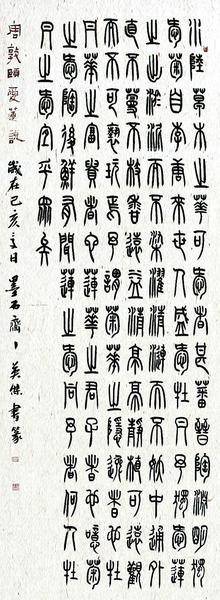 水陸草木之華可愛者甚蕃晉陶淵明獨
愛菊自李唐來世人盛愛牡丹予獨愛蓮
之出淤泥而不染濯清漣而不妖中通外
直不蔓不枝香遠益清亭亭靜植可遠觀
而不可褻玩焉予謂菊華之隱逸者也牡
丹華之富貴者也蓮華之君子者也噫菊
之愛陶後鮮有聞蓮之愛同予者何人牡
丹之愛宜乎眾矣
唐敦頤愛蓮說 歲在己亥冬日 墨石齋 英傑書篆